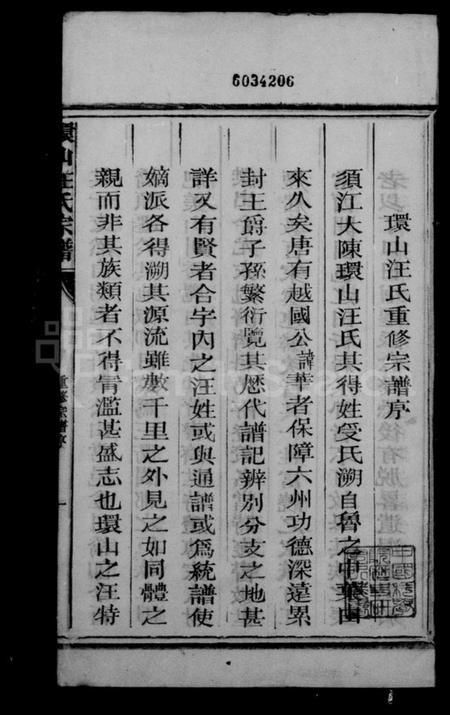 6034206
環山汪氏重修宗譜序
須江大陳環山汪氏其得姓受氏溯自魯之中葉由
來久矣唐有越國公諱華者保障六州功德深遠累
封王爵子孫繁衍覽其歷代譜記辨別分支之地甚
詳又有賢者合宇內之汪姓或與通譜或爲統譜使
嫡派各得溯其源流雖數千里之外見之如同體之
親而非其族類者不得冐濫甚盛志也環山之汪特
環山汪氏宗譜
重修宗譜序
一